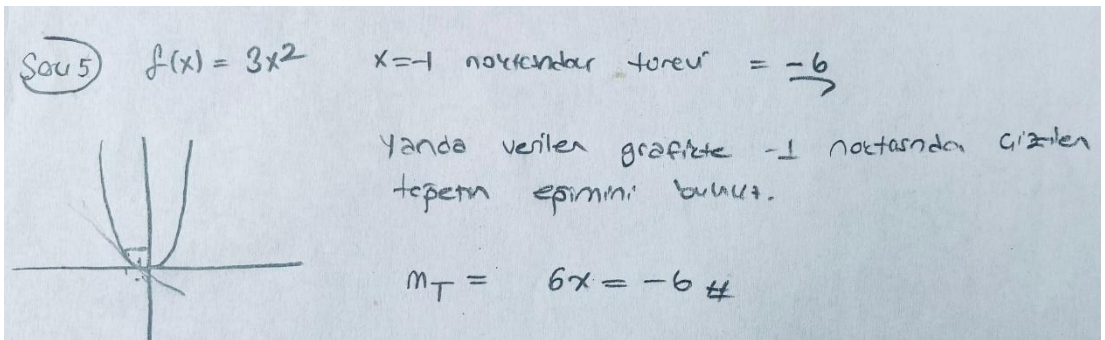 Soru 5) f(x) = 3x2 x=-1 noktasındaki türevi = -6
Yanda verilen grafikte -1 noktasında çizilen
teğetin eğimini buluruz.
mT = 6x = -6 #